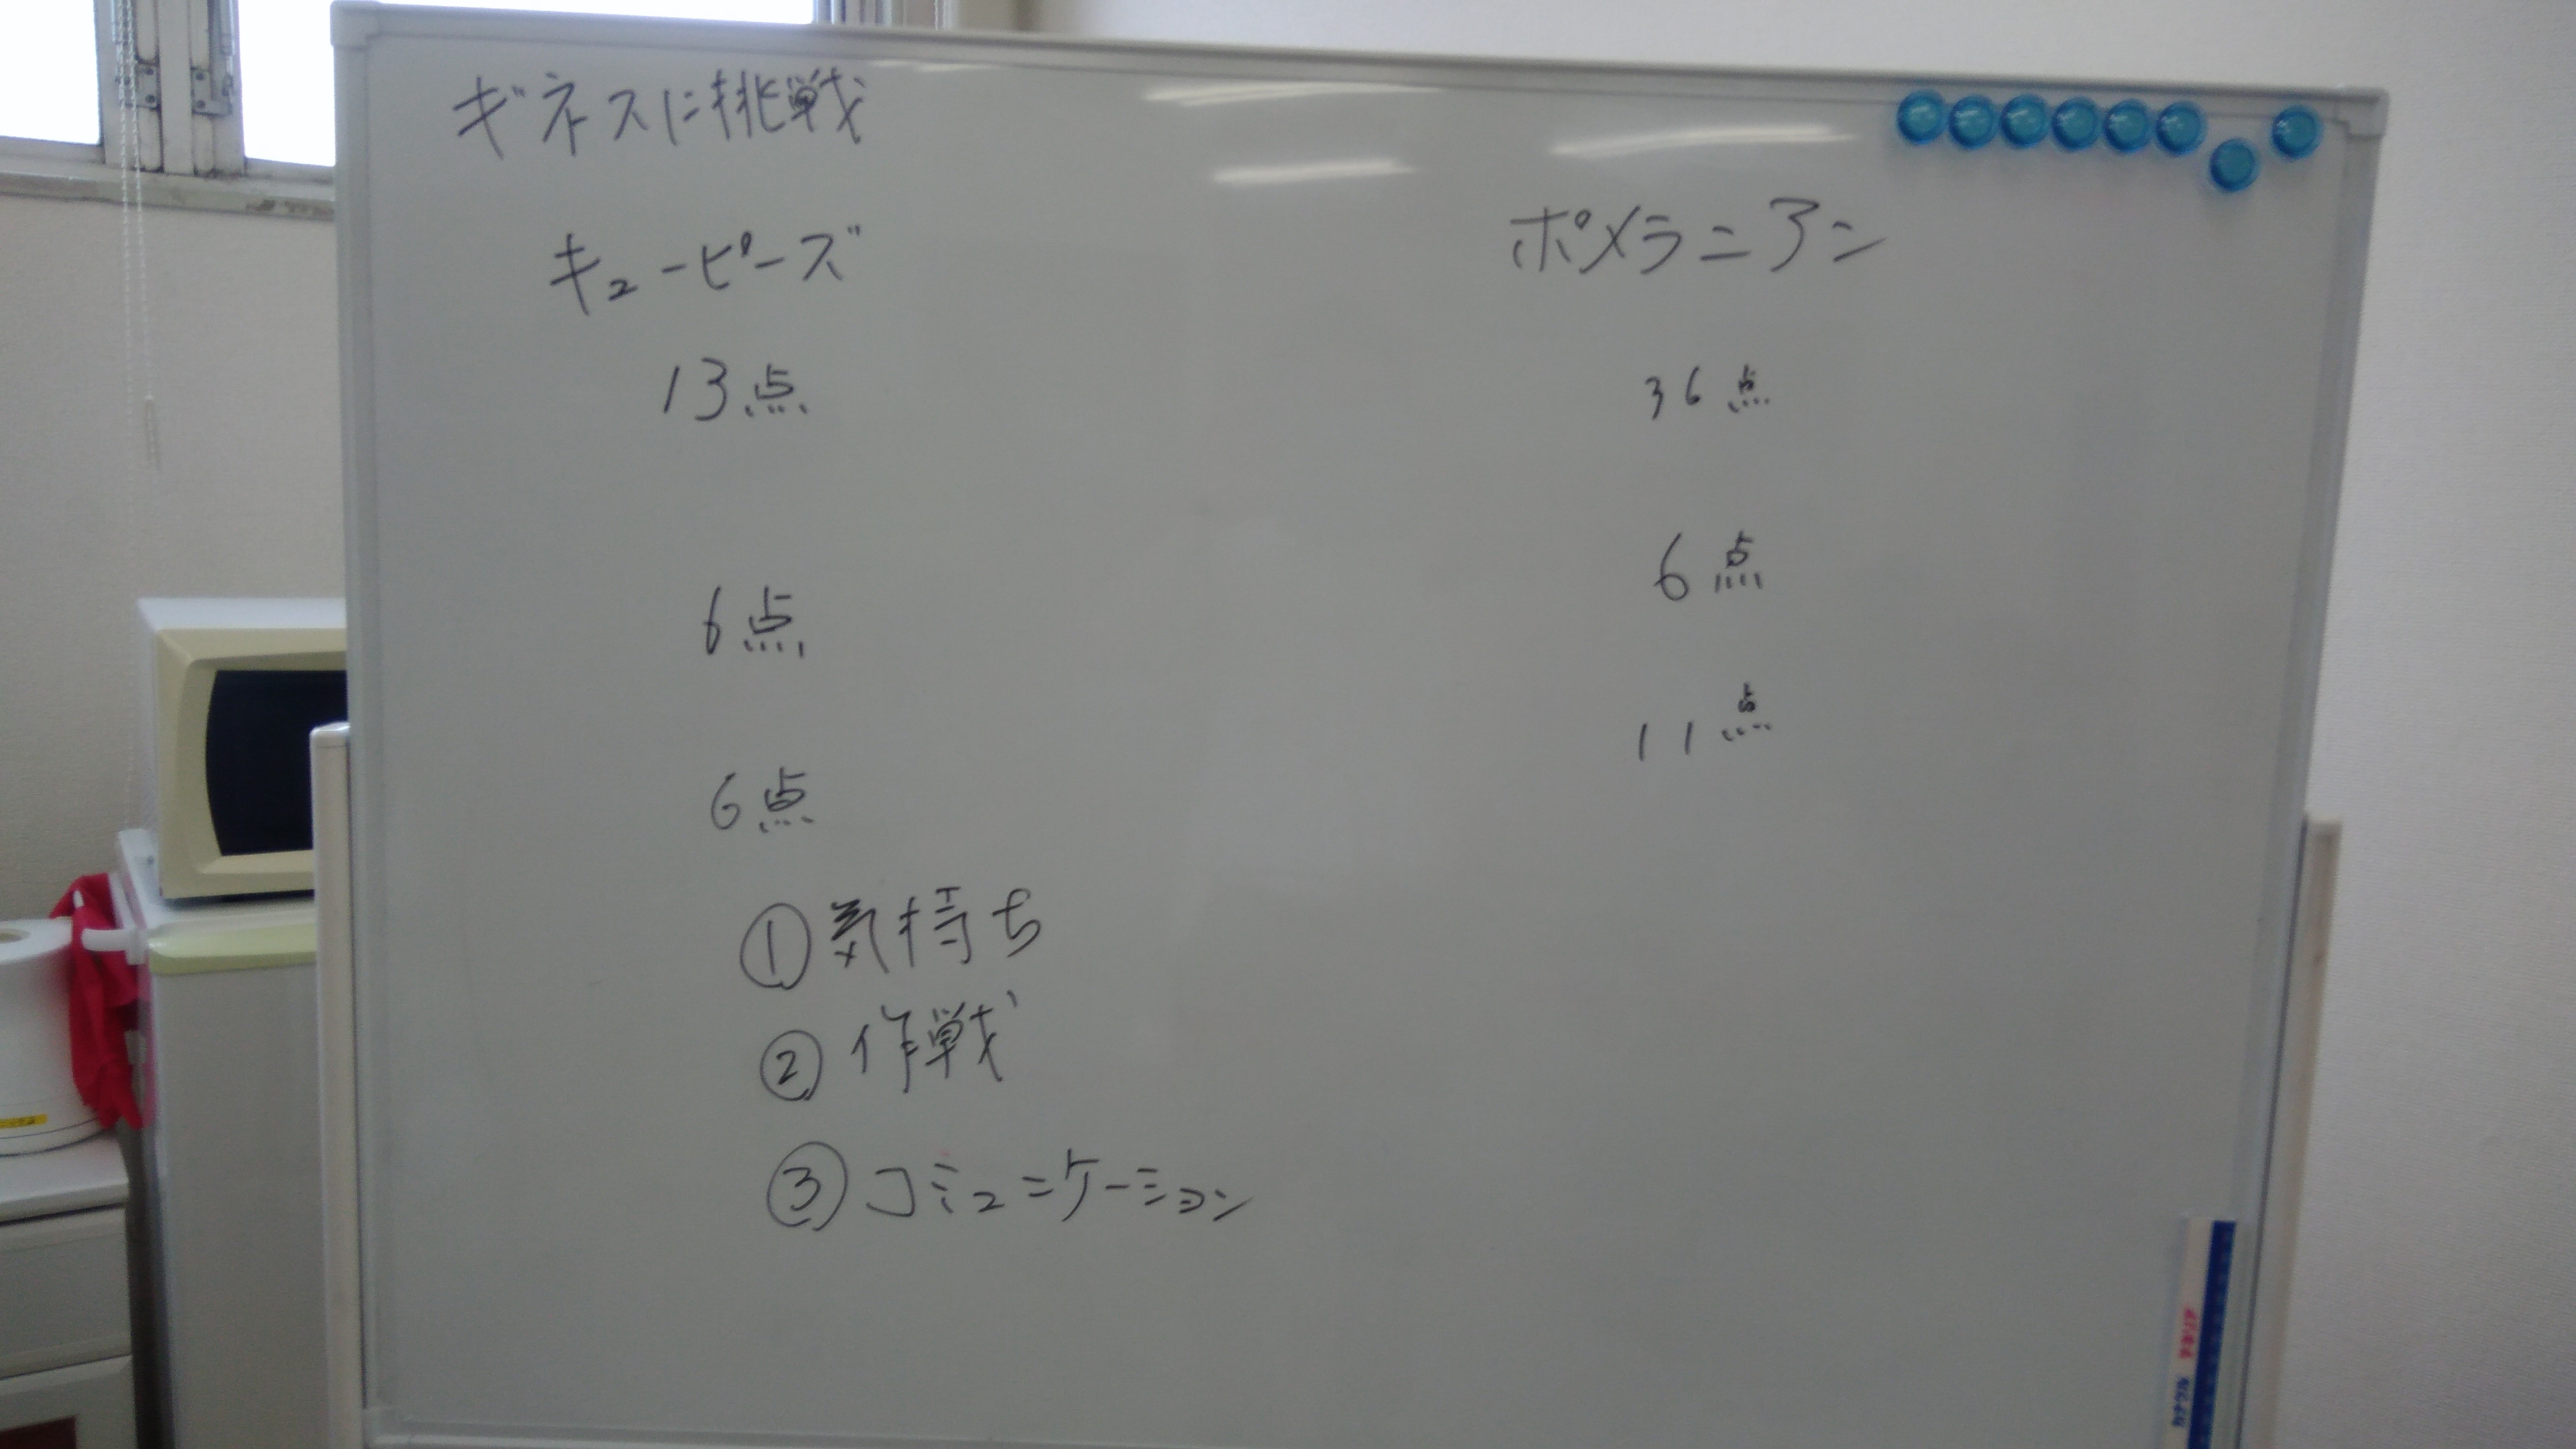 ギネスに挑戦
キューピーズ
13点
6点
6点
①気持ち
②作戦
③コミュニケーション
ポメラニアン
36点
6点
11点